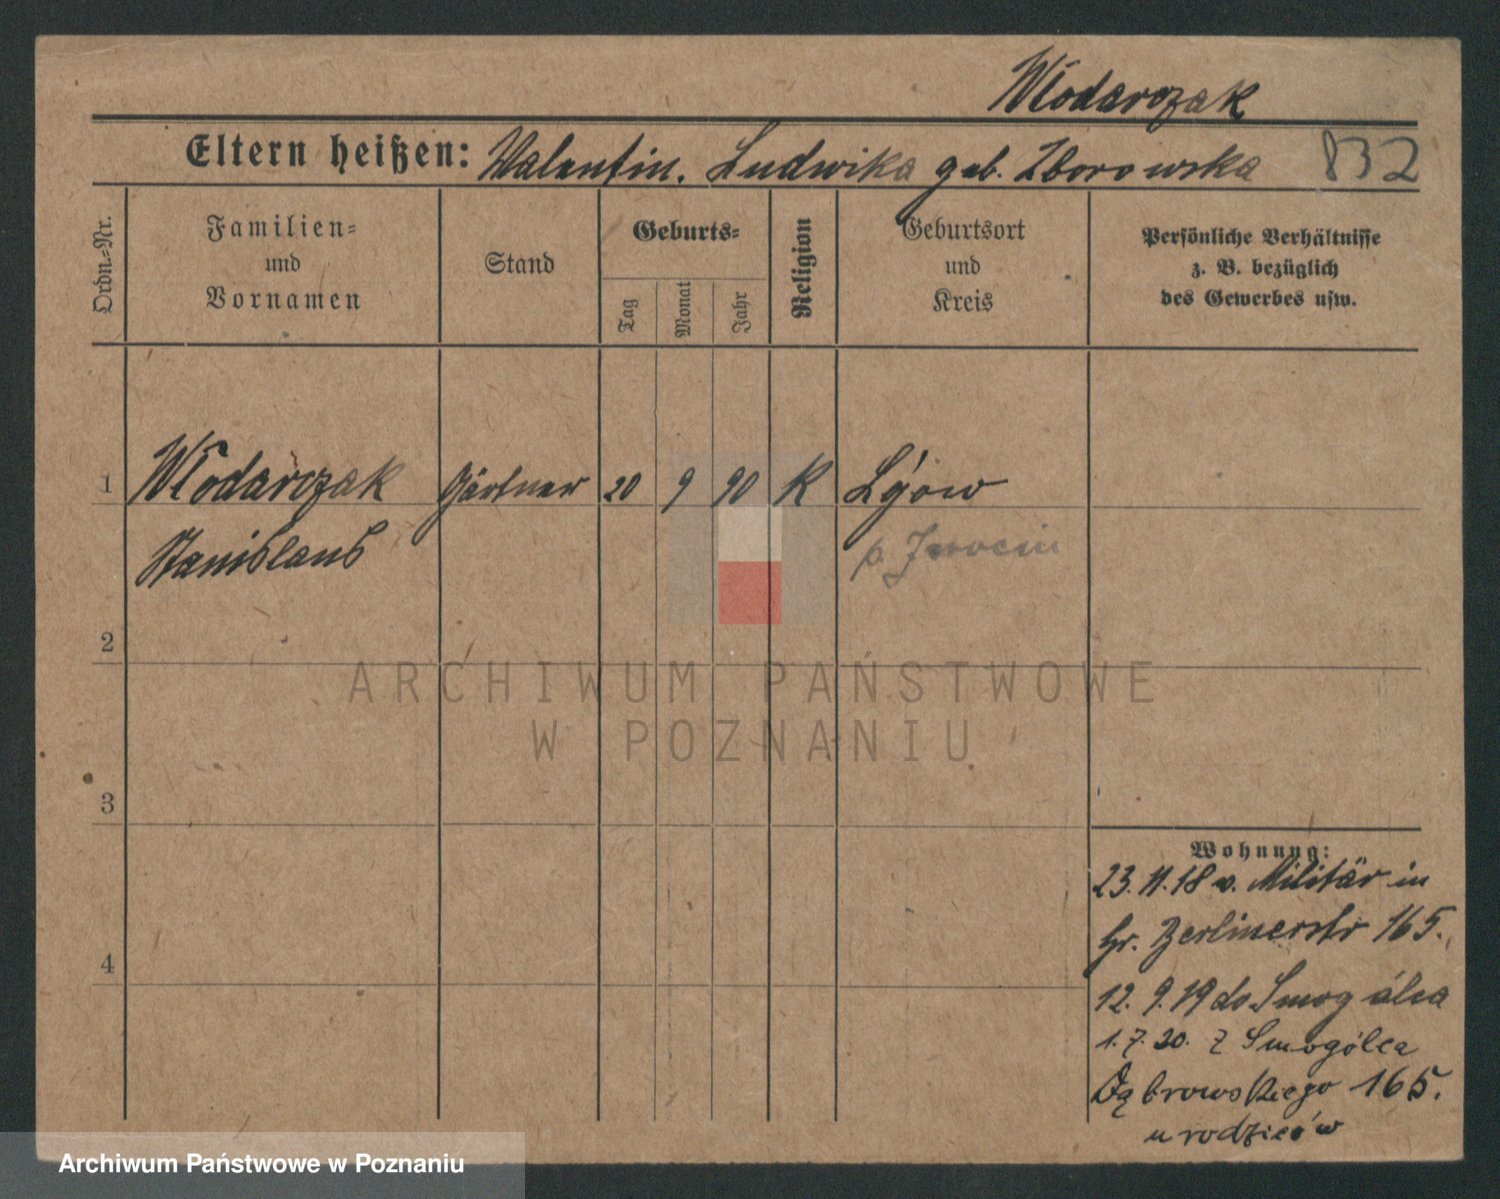 Włodarczak
Eltern heißen: Valentin. Ludwika geb. Zborowska 832
Ordn.=Nr.
Familien=
und
Vornamen
Stand
Geburts=
Tag
Monat
Jahr
Religion
Geburtsort
und
Kreis
Persönliche Verhältnisse
z. B. bezüglich
des Gewerbes usw.
1 Włodarczak Gärtner 20 9 90 K
Stanislaus p. Jarocin
2
ARCHIWUM PAŃSTWOWE
W POZNANIU
3
Wohnung:
23.11.18 v. Militär in
Gr. Berlinerstr 165.
4
12. 9. 19 do Smogólca
1. 7. 20. z Smogólca
Dąbrowskiego 165.
u rodziców
Archiwum Państwowe w Poznaniu